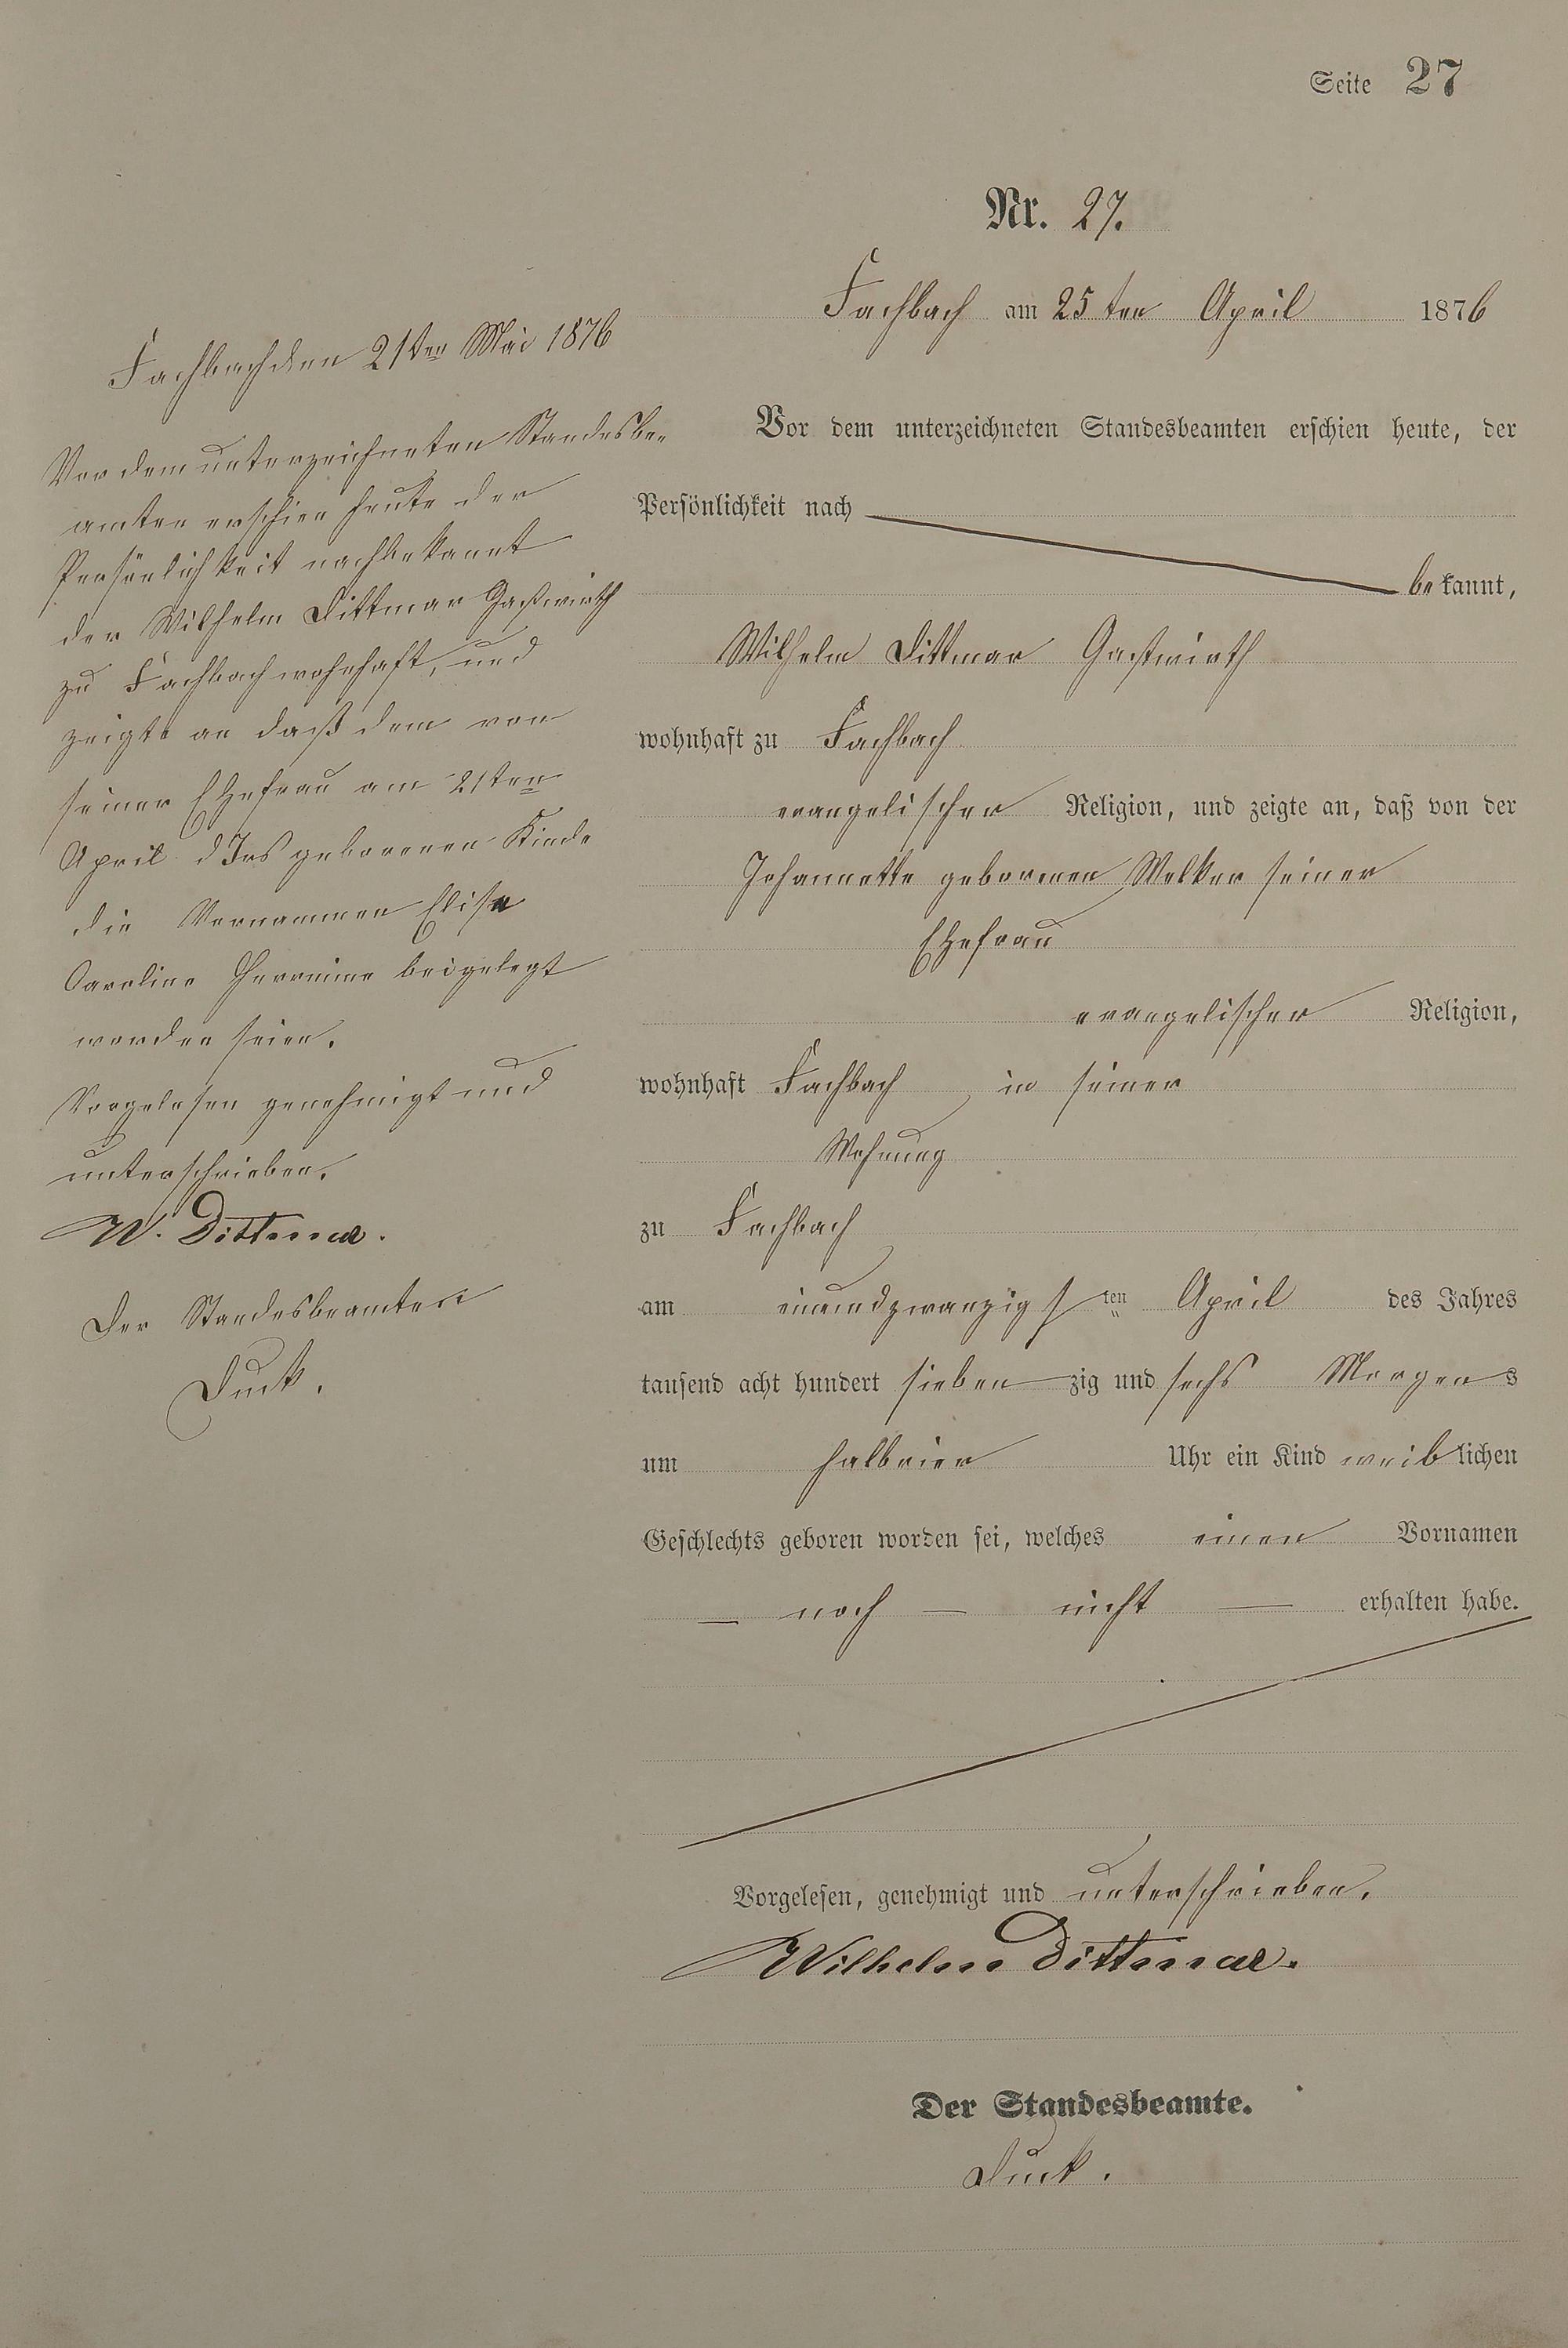 Seite 27
Nr. 27.
Fachbach am 25ten April 1876
Vor dem unterzeichneten Standesbeamten erschien heute, der
Persönlichkeit nach
bekannt,
Wilhelm Dittmar Gastwirth
wohnhaft zu Fachbach
evangelischer Religion, und zeigte an, daß von der
Johannette geborenen Welker seiner
Ehefrau
evangelischer Religion,
wohnhaft Fachbach in seiner
Wohnung
zu Fachbach
am einundzwanzigsten April des Jahres
tausend acht hundert siebenzig und sechs Morgens
um halbvier Uhr ein Kind weiblichen
Geschlechts geboren worden sei, welches einen Vornamen
— noch — nicht — erhalten habe.
Vorgelesen, genehmigt und unterschrieben.
Wilhelm Dittmar.
Der Standesbeamte.
Duck.
Fachbach den 21ten Mai 1876
Vor dem unterzeichneten Standesbe-
amten erschien heute der
Persönlichkeit nach bekannt
der Wilhelm Dittmar Gastwirth
zu Fachbach wohnhaft, und
zeigte an daß dem von
seiner Ehefrau am 21ten
April d Jrs geborenen Kinde
die Vornammen Elise
Caroline Hermine beigelegt
worden seien.
Vorgelesen genehmigt und
unterschrieben.
W. Dittmar.
Der Standesbeamte
Duck.